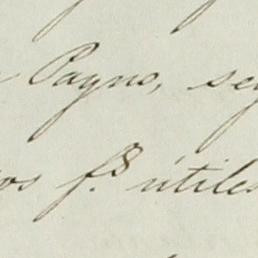 Payno, seg
os f.s útiles